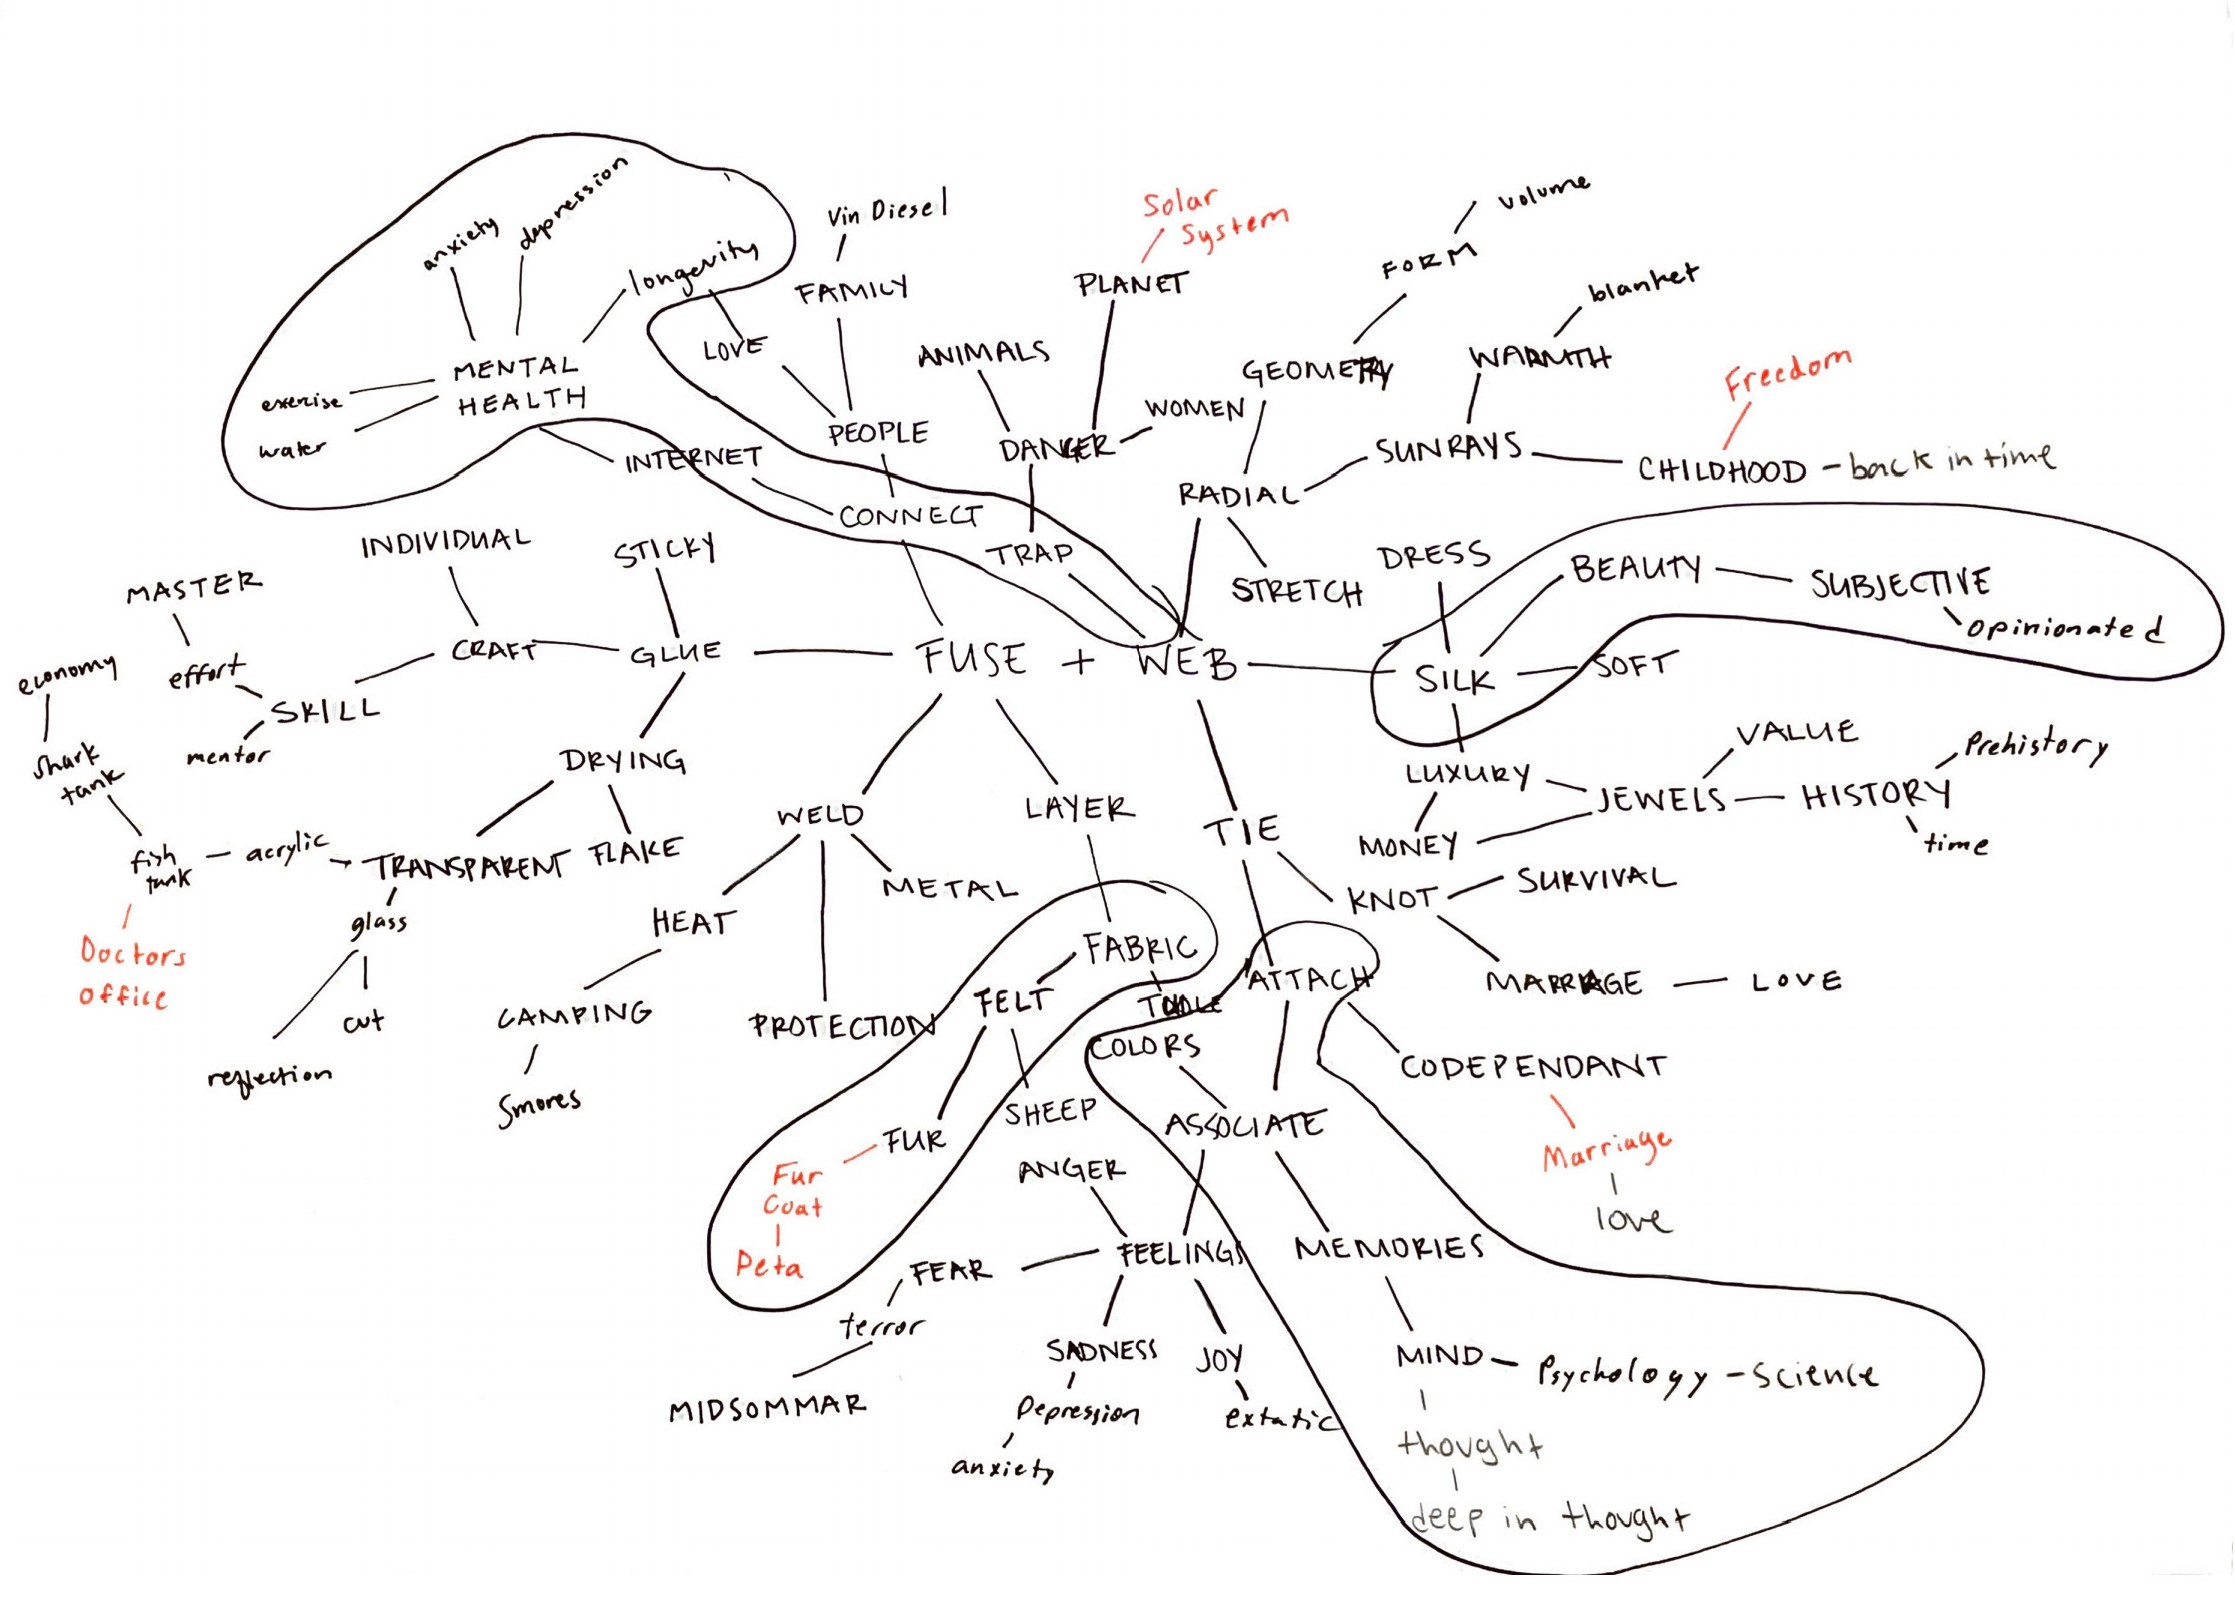 Solar
System
Vin Diesel
volume
depression
anxiety
longevity
FAMILY
PLANET
FORM
blanket
LOVE
ANIMALS
GEOMETRY
WARMTH
Freedom
MENTAL
HEALTH
exercise
water
PEOPLE
DANGER
WOMEN
SUNRAYS
CHILDHOOD - back in time
INTERNET
RADIAL
CONNECT
INDIVIDUAL
STICKY
TRAP
STRETCH
DRESS
BEAUTY
SUBJECTIVE
opinionated
MASTER
CRAFT
GLUE
FUSE + WEB
SILK
SOFT
economy
effort
SKILL
mentor
shark
tank
DRYING
LUXURY
VALUE
Prehistory
JEWELS
HISTORY
time
WELD
LAYER
TIE
MONEY
fish
tank
acrylic
TRANSPARENT
FLAKE
METAL
KNOT
SURVIVAL
glass
HEAT
Doctors
office
FABRIC
ATTACH
MARRIAGE
LOVE
FELT
cut
CAMPING
PROTECTION
COLORS
CODEPENDANT
reflection
Smores
SHEEP
ASSOCIATE
FUR
Marriage
love
Fur
Coat
Peta
ANGER
FEELINGS
MEMORIES
FEAR
terror
SADNESS
JOY
MIND - Psychology - Science
MIDSOMMAR
Depression
extatic
anxiety
thought
deep in thought